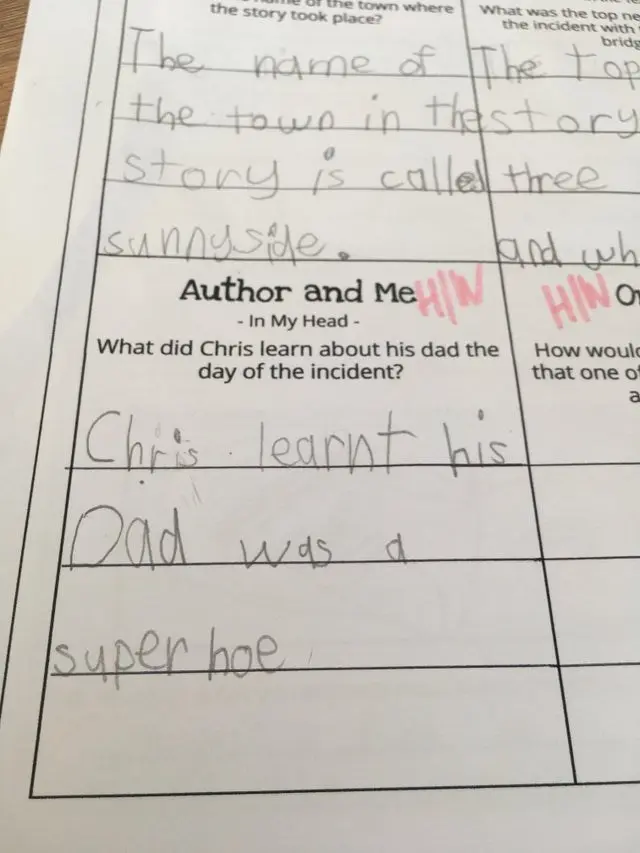 of the town where
the story took place?
The name of
the town in the
story is called
sunnyside.
What was the top
the incident with
The top
story
three
and
Author and Me H/W
- In My Head -
What did Chris learn about his dad the
day of the incident?
Chris learnt his
Dad was a
super hoe
H/W
How
that one